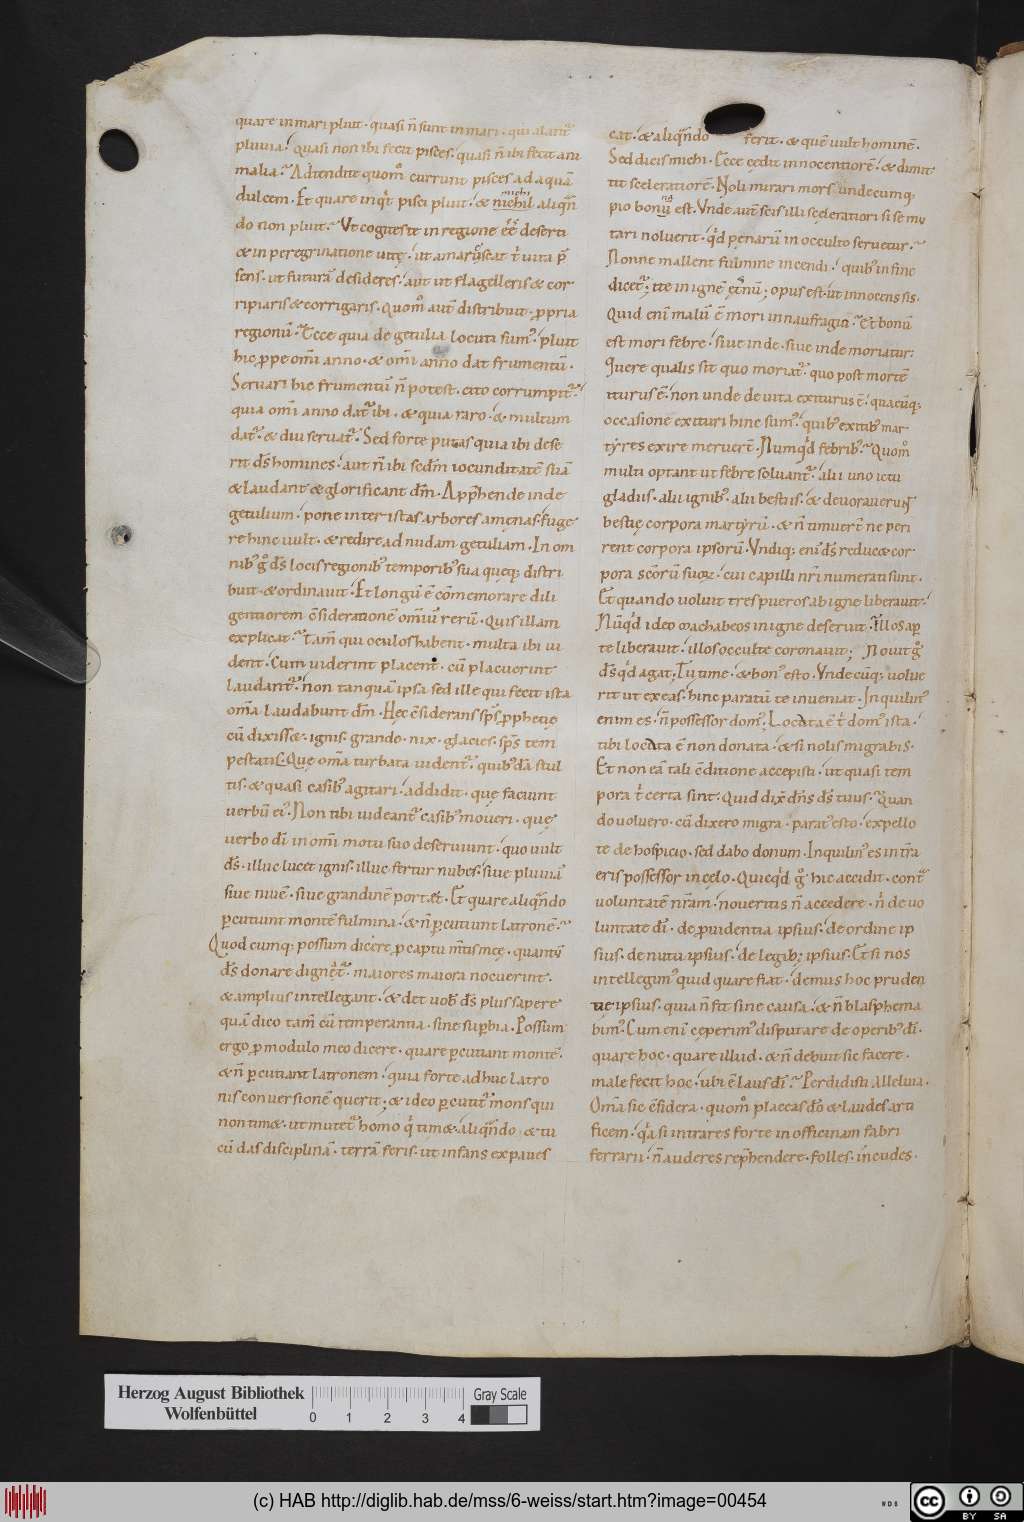 quare in mari pluit · quasi n̄ sunt in mari · qui alant᷑
pluuia? Quasi non ibi fecit pisces · quasi n̄ ibi fecit ani
malia? Adtendite quom̊ currunt pisces ad aquā
dulcem · Et quare inq͛t pisci pluit · & nichil aliqn̄
do non pluit? Vt cogites te in regione eē̄ deserti
& in peregrinatione uitę · ut amarū́scat t̓ uita p̄
sens · ut futurā desideres · aut ut flagelleris & cor
ripiaris & corrigaris · Quom̊ aut̄ distribuit · ꝓpria
regionū? Ecce quia de getulia locuti sumꝰ · pluit
hic ꝓpe om̄i anno · & om̄i anno dat frumentū ·
Seruari hic frumentū n̄ potest · cito corrumpit᷑ ·
quia om̄i anno dat᷑ ibi · & quia raro · & multum
dat᷑ · & diu seruat᷑ · Sed forte putas quia ibi dese
rit d̄s homines · aut n̄ ibi sed̄m iocunditatē suā
& laudant & glorificant dm̄ · App̄hende inde
getulium · pone inter istas arbores amęnas · fuge
re hinc uult · & redire ad nudam getuliam · In om
nibꝰ g̊ d̄s locis regionibꝰ temporibꝰ sua quęq; distri
buit · & ordinauit · Et longū ē cōmemorare dili
gentiorem c̄siderationē om̄iū rerū · Quis illam
explicat? Tam̄ qui oculos habent · multa ibi ui
dent · Cum uiderint placent · cū placuerint
laudant᷑ · non tanquā ipsa sed ille qui fecit ista
om̄a laudabunt dm̄ · Hęc c̄siderans sp̄s ꝓphetię
cū dixiss& · ignis · grando · nix · glacies · sp̄s tem
pestatis · Quę om̄a turbata uident᷑ · quibꝰdā stul
tis · & quasi casibꝰ agitari · addidit · quę faciunt
uerbū eiꝰ · Non tibi uideant᷑ casibꝰ moueri · quę
uerbo dī in om̄i motu suo deseruiunt · quo uult
d̄s · illuc lucet ignis · illuc fertur nubes · siue pluuiā
siue niuē · siue grandinē port& · Et quare aliqn̄do
ꝑcutiunt montē fulmina · & n̄ ꝑcutiunt latronē?
Quod cumq; possum dicere ꝓ captu m̄tis męę · quantū
d̄s donare dignet᷑ · maiores maiora nouerint ·
& amplius intellegant · & det uob̄ d̄s plus sapere
quā dico tam̄ cū temperantia · sine suꝑbia · Possum
ergo ꝓ modulo meo dicere · quare ꝑcutiant montē ·
& n̄ ꝑcutiant latronem · quia forte adhuc latro
nis conuersionē querit · & ideo ꝑcutit᷑ mons qui
non tim& · ut mutet᷑ homo q͛ tim& · aliqn̄do & tu
cū das disciplinā · terrā feris · ut infans expaues
cat · & aliqn̄do ferit · & quē uult hominē ·
Sed dicis michi · Ecce cędit innocentiorē · & dimit
tit sceleratiorē · Noli mirari mors undecumq;
pio bonū est · Vnde aut̄ scis illi sceleratiori si se mu
tari noluerit · q͛d pęnarū in occulto seruetur?
Nonne mallent fulmine incendi · quibꝰ in fine
dicet᷑ · ite in ignē ęt̄nū; opus est · ut innocens sis ·
Quid eni malū ē mori in naufragio? & bonū
est mori febre · siue inde · siue inde moriatur;
Quere qualis sit quo moriat᷑ · quo post mortē
iturus ē · non unde de uita exiturus ē · quacūq;
occasione exituri hinc sumꝰ · quibꝰ exitibꝰ mar
tyres exire meruert̄ · Numq͛d febribꝰ? Quom̊
multi optant ut febre soluant᷑ · alii uno ictu
gladiis · alii ignibꝰ · alii bestiis · & deuorauerunt
bestię corpora martyrū · & n̄ timuert̄ ne peri
rent corpora ipsorū · Vndiq; enī d̄s reduc& cor
pora scōrū suoꝝ · cui capilli nr̄i numerati sunt ·
Et quando uoluit tres pueros ab igne liberauit ·
Nūq͛d ideo machabeos in igne deseruit · Illos aꝑ
te liberauit · illos occulte coronauit; Nouit g̊
d̄s q͛d agat · Tu time · & bonꝰ esto · Vnde cūq; uolue
rit ut exeas · hinc paratū te inueniat · Inquilinꝰ
enim es · n̄ possessor domꝰ · Locata ē t̓ domꝰ ista ·
tibi locata ē non donata · & si nolis migrabis ·
Et non eā tali c̄ditione accepisti · ut quasi tem
pora t̓ certa sint · Quid dix̄ dn̄s d̄s tuus · Quan
do uoluero · cū dixero migra · paratꝰ esto · expello
te de hospicio · sed dabo donum · Inquilinꝰ es in terra
eris possessor in cęlo · Quicq͛d g̊ hic accidit · cont᷑
uoluntatē nr̄am · noueritis n̄ accedere · n̓ de uo
luntate dī · de ꝓuidentia ipsius · de ordine ip
sius · de nutu ipsius · de legibꝰ ipsius · Et si nos
intellegimꝰ quid quare fiat · demus hoc pruden
tię ipsius · quia n̄ fit sine causa · & n̄ blasphema
bimꝰ · Cum enī cęperimꝰ disputare de operibꝰ dī ·
quare hoc · quare illud · & n̄ debuit sic facere ·
male fecit hoc · ubi ē laus dī? Perdidisti alleluia ·
Om̄a sic c̄sidera · quom̊ placeas do̅ & laudes arti
ficem · q͛a si intrares forte in officinam fabri
ferrarii · n̄ auderes rep̄hendere · folles · incudes ·
Herzog August Bibliothek
Wolfenbüttel
0 1 2 3 4
Gray Scale
(c) HAB http://diglib.hab.de/mss/6-weiss/start.htm?image=00454
WDB
cc
BY SA